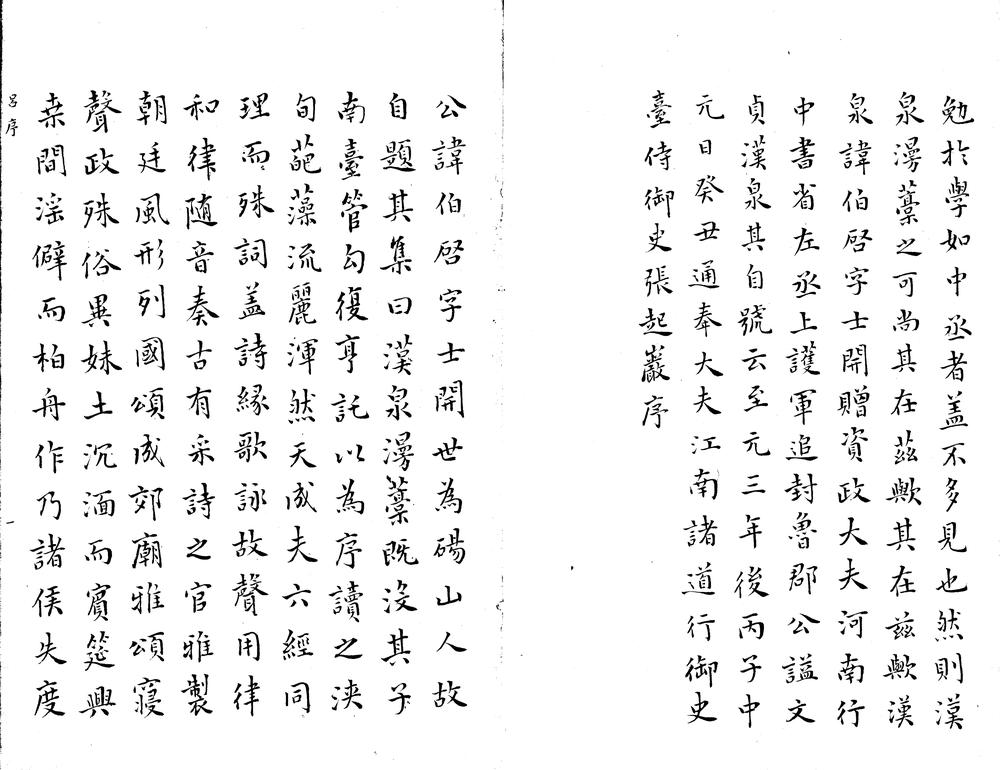 勉於學如中丞者蓋不多見也然則漢
泉漫藁之可尚其在茲歟其在茲歟漢
泉諱伯啓字士開贈資政大夫河南行
中書省左丞上護軍追封魯郡公諡文
貞漢泉其自號云至元三年後丙子中
元日癸丑通奉大夫江南諸道行御史
臺侍御史張起巖序
公諱伯啓字士開世為碭山人故
自題其集曰漢泉漫藁既沒其子
南臺管勾復亨託以為序讀之浹
旬葩藻流麗渾然天成夫六經同
理而殊詞蓋詩緣歌詠故聲用律
和律随音奏古有采詩之官雅製
朝廷風形列國頌成郊廟雅頌寢
聲政殊俗異妹土沉湎而賓筵興
桒間淫僻而柏舟作乃諸侯失度
呂序
一